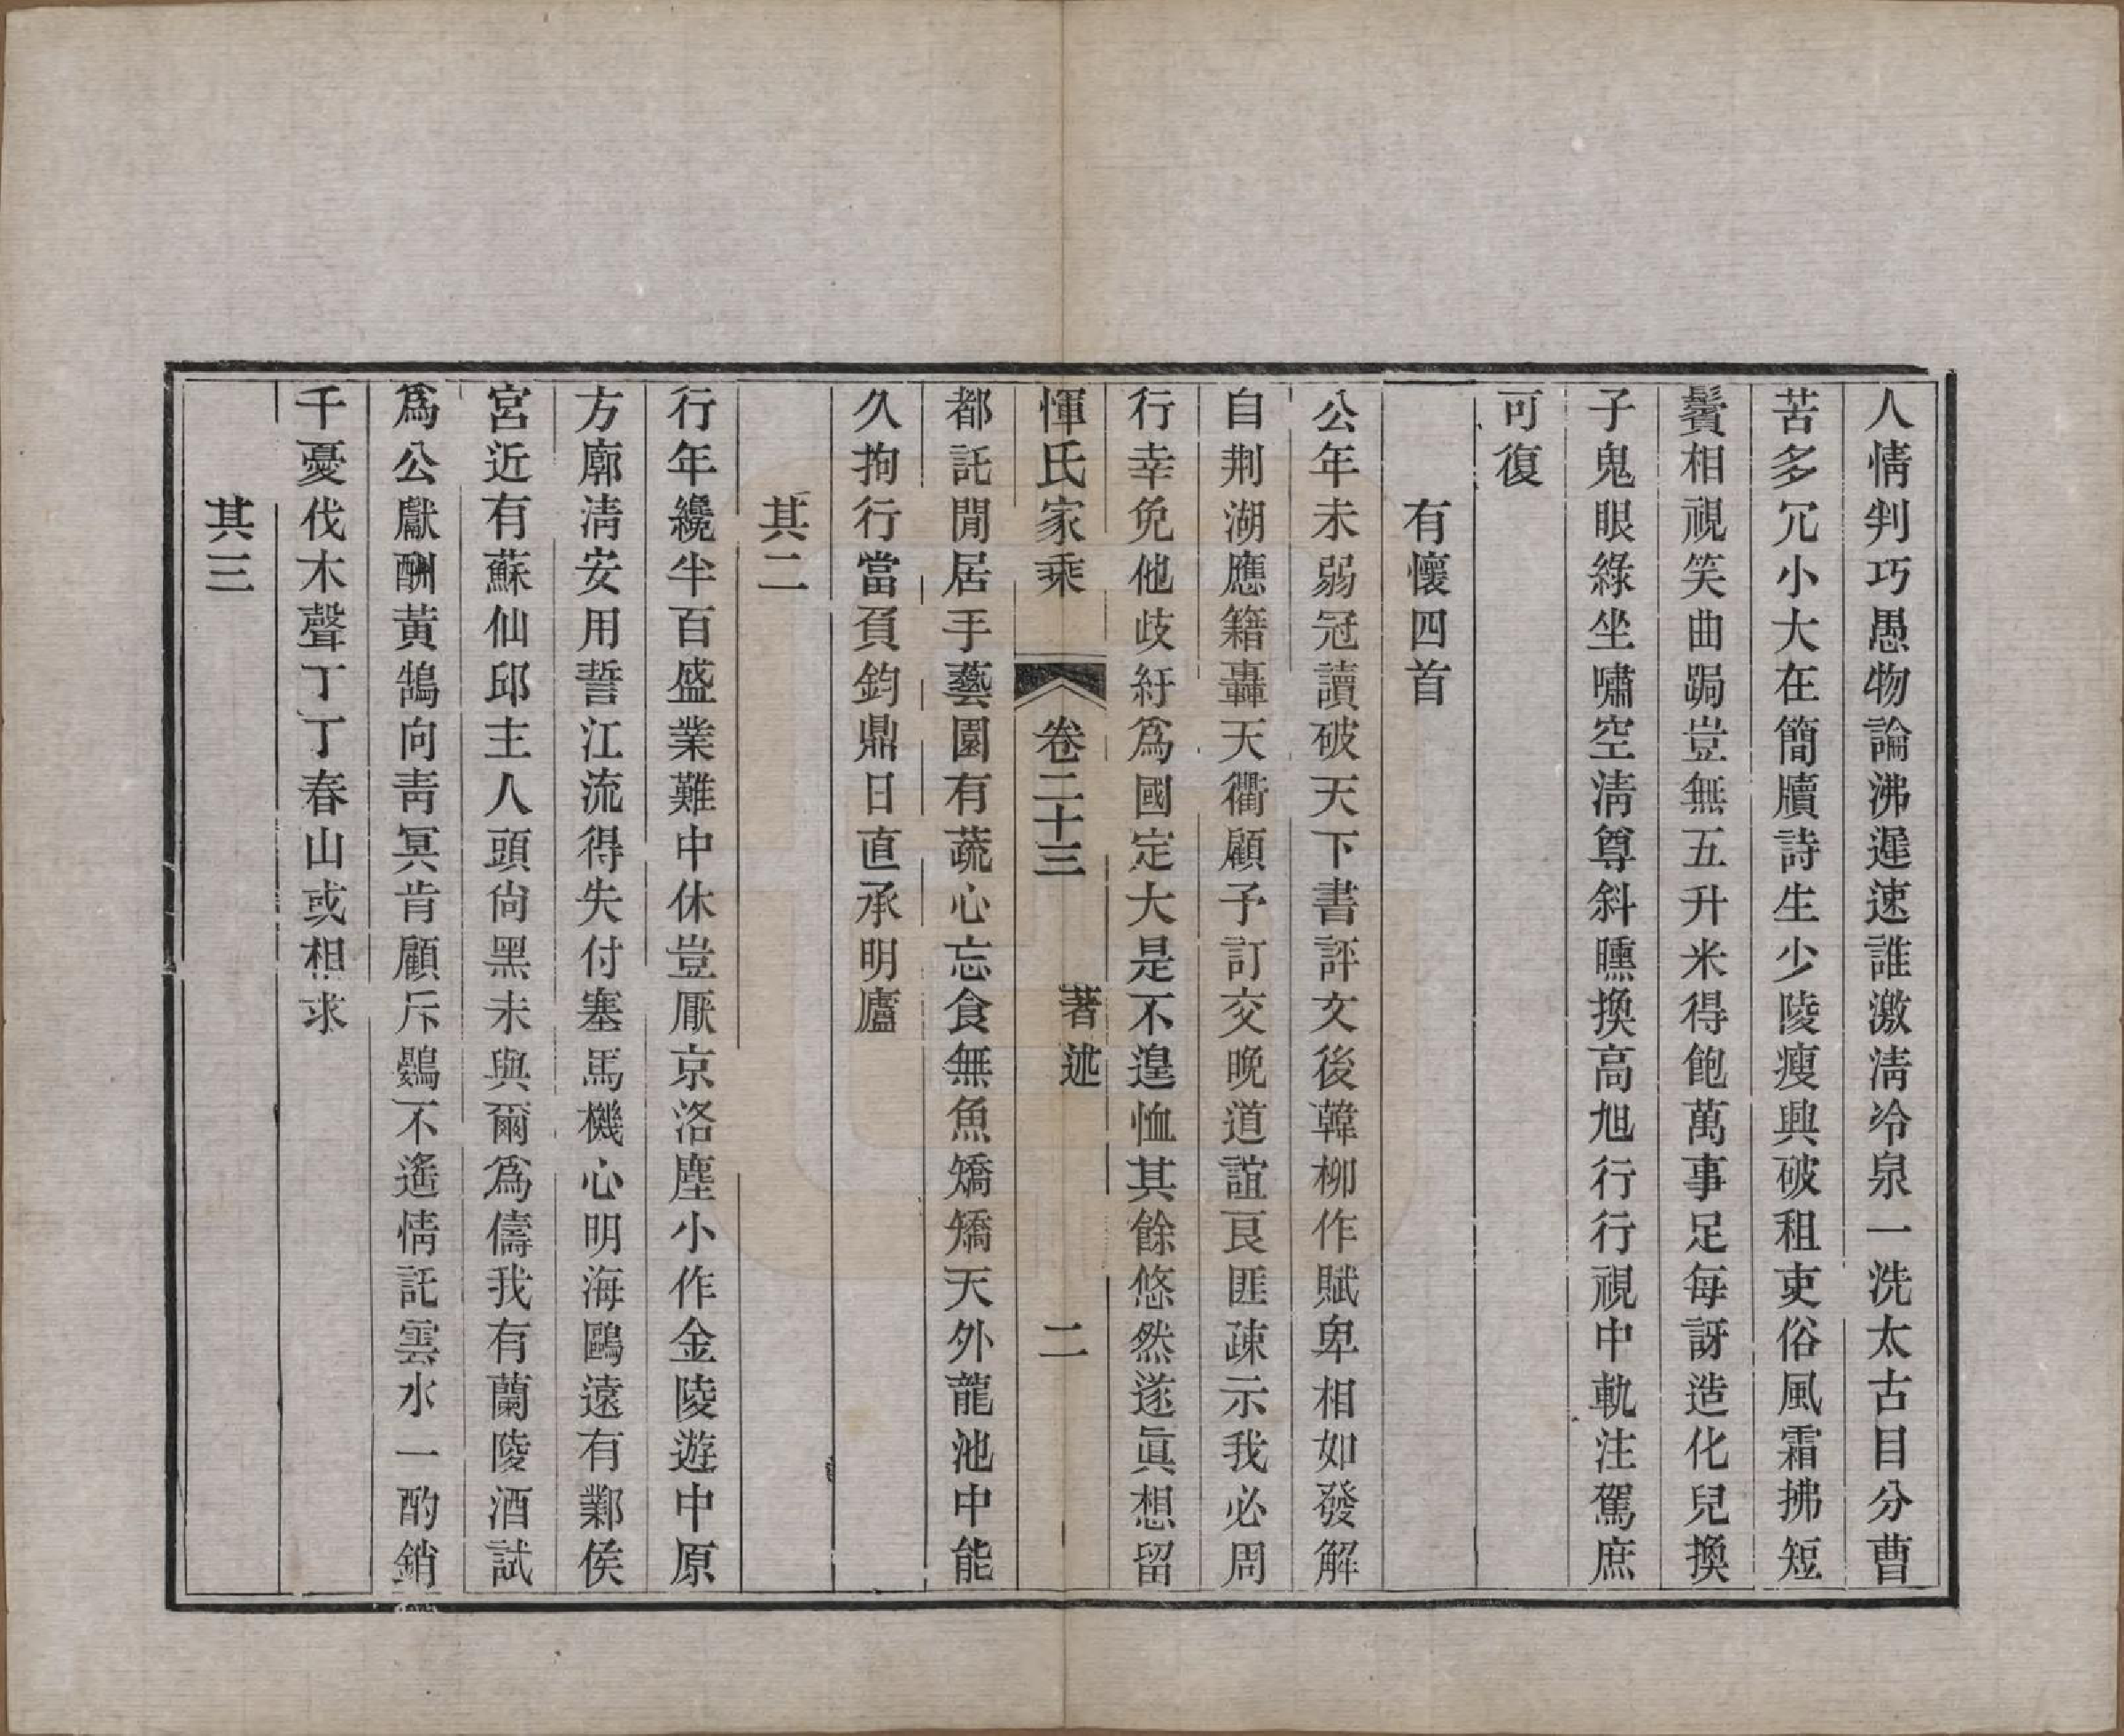 人情判巧愚物論沸遲速誰激淸冷泉一洗太古目分曹
苦多冗小大在簡牘詩生少陵瘦興破租吏俗風霜拂短
鬢相視笑曲跼豈無五升米得飽萬事足每訝造化兒換
子鬼眼綠坐嘯空淸尊斜曛換高旭行行視中軌注駕庶
可復
有懷四首
公年未弱冠讀破天下書評文後韓柳作賦卑相如發解
自荆湖應籍轟天衢顧予訂交晚道誼良匪疎示我必周
行幸免他歧紆爲國定大是不遑恤其餘悠然遂眞想留
惲氏家乘 卷二十三 著述 二
都託閒居手藝園有蔬心忘食無魚矯矯天外龍池中能
久拘行當負鈞鼎日直承明廬
其二
行年纔半百盛業難中休豈厭京洛塵小作金陵遊中原
方廓淸安用誓江流得失付塞馬機心明海鷗遠有鄴侯
宮近有蘇仙邱主人頭尙黑未與爾爲儔我有蘭陵酒試
爲公獻酬黃鵠向靑冥肯顧斥鷃不遙情託雲水一酌銷
千憂伐木聲丁丁春山或相求
其三